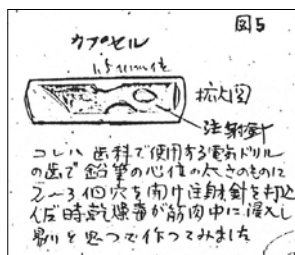 図5
カプセル
1.5
拡大図
注射針
コレハ 歯科で使用する電気ドリル
の歯で鉛筆の心位の太さのものに
2〜3個穴を開け注射針を打込
時乾燥毒が筋肉中に侵入し
易い で作ってみました